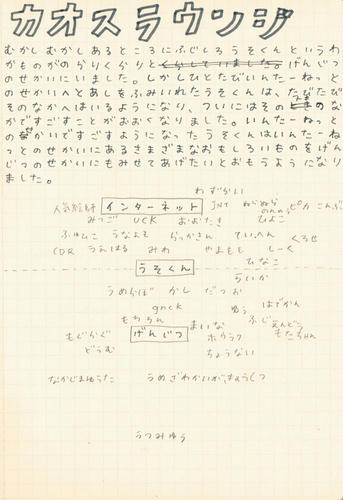 カオスラウンジ
むかしむかしあるところにふじしろうそくんというわ
かものがのらりくらりとくらしていました。げんじつ
のせかいにいました。しかしひとたびいんたーねっと
のせかいへとあしをふみいれたうそくんは、たびたび
そのなかへはいるようになり、ついにはそのなか
でですごすことがおおくなりました。いんたーねっと
のなかいですごすようになったうそくんはいんたーね
っとのせかいにあるさまざまなおもしろいものをげん
じつのせかいにもみせてあげたいとおもうようになり
ました。
わずかい
人気絵師 インターネット JNT ねじぬら ピカ こんぶ
みつご UCK おおたき ひよこ
ふゅひこ うなよそ らっかさん ていへん くろせ
CDR うえはる みわ やまもも しーく
ひなこ
うそくん
らいか
うめらぼ かし だつお
gnck ゆう はでかん
もちろん まいな ふじえんどう
もぐらぐ げんじつ ホウラク もたちゃん
どうむ
ちょうない
なかじまゆうた うめざわかいがきょうしつ
うつみゆう